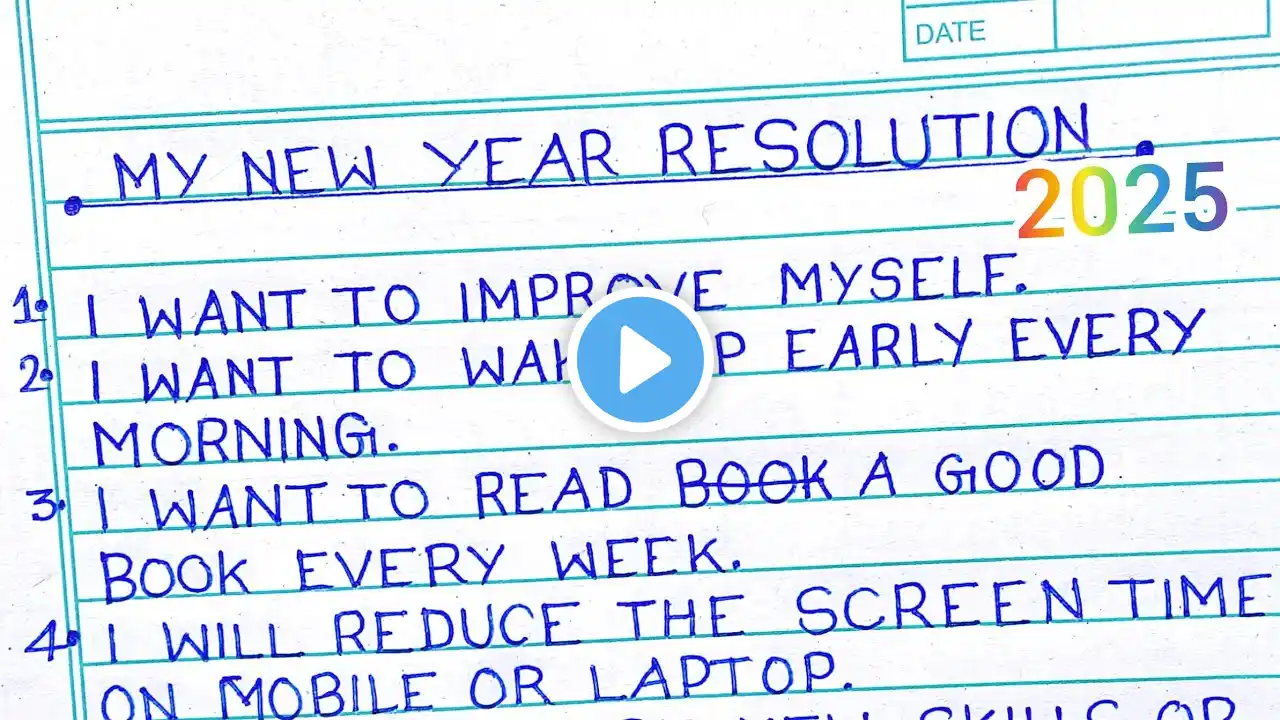 DATE
MY NEW YEAR RESOLUTION
2025
1. I WANT TO IMPROVE MYSELF.
2. I WANT TO P EARLY EVERY
MORNING.
3. I WANT TO READ BOOK A GOOD
BOOK EVERY WEEK.
4. I WILL REDUCE THE SCREEN TIME
ON MOBILE OR LAPTOP.
SKILLS OR